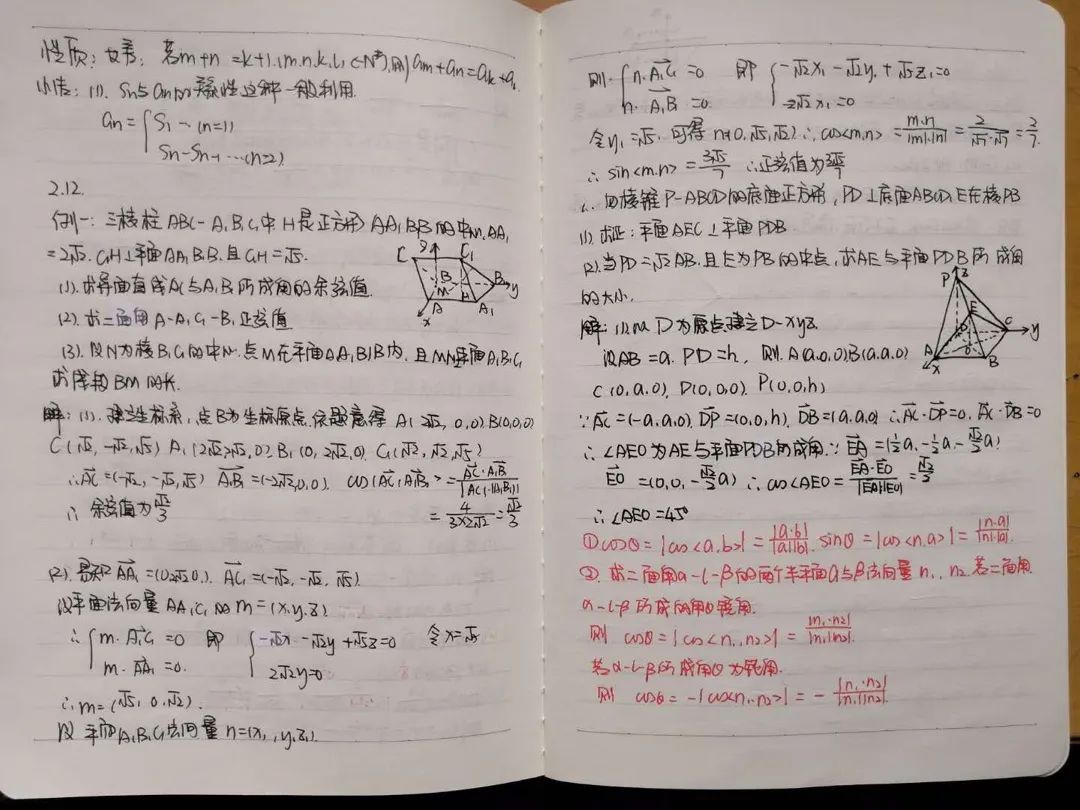 性质：等差：若m+n=k+l.(m.n.k.l.∈N*),则am+an=ak+al.
小结：(1). Sn与an的关系性这种一般利用.
an={S1…(n=1)
Sn-Sn-1…(n≥2)
2.12.
例一：三棱柱ABC-A1B1C1中H是正方形AA1B1B的中心.AA1
=2√2. C1H⊥平面AA1B1B.且C1H=√5.
(1).求异面直线AC与A1B1所成角的余弦值.
(2).求二面角A-A1C1-B1正弦值
(3).设N为棱B1C1的中点.点M在平面AA1B1B内.且MN⊥平面A1B1C1
求线段BM的长.
C C1 B M H B1 y A A1 x
解：(1).建立坐标系，点B为坐标原点.依题意得A(2√2,0,0).B(0,0,0)
C(√2,-√2,√5) A1(2√2,2√2,0).B1(0,2√2,0).C1(√2,√2,√5)
∴AC=(-√2,-√2,√5) A1B1=(-2√2,0,0). cos<AC,A1B1>=AC·A1B1/|AC|·|A1B1|
∴余弦值为√2/3 =4/3×2√2=√2/3
(2).易知AA1=(0,2√2,0). A1C1=(-√2,-√2,√5).
设平面法向量AA1C1的m=(x,y,z)
∴{m·A1C1=0 即 {-√2x-√2y+√5z=0 令x=√5
m·AA1=0. 2√2y=0
∴m=(√5,0,√2).
设平面A1B1C1法向量n=(x1,y1,z1).
则{n·A1C1=0 即 {-√2x1-√2y1+√5z1=0
n·A1B1=0. -2√2x1=0
令y1=√5.可得n=(0,√5,√2).∴cos<m,n>=m·n/|m|·|n|=2/√7·√7=2/7.
∴sin<m,n>=3√5/7 ∴正弦值为3√5/7
四棱锥P-ABCD的底面正方形，PD⊥底面ABCD,E在棱PB
(1).求证：平面AEC⊥平面PDB
(2).当PD=√2AB.且E为PB的中点，求AE与平面PDB所成角
的大小.
P z E D O C y A B x
解：(1).以D为原点建立D-xyz.
设AB=a.PD=h, 则.A(a,0,0)B(a,a,0)
C(0,a,0),D(0,0,0).P(0,0,h)
∵AC=(-a,a,0),DP=(0,0,h),DB=(a,a,0) ∴AC·DP=0,AC·DB=0
∴∠AEO为AE与平面PDB的成角.∵EA=(½a,-½a,-√2/2a)
EO=(0,0,-√2/2a) ∴cos∠AEO=EA·EO/|EA||EO|=√2/2
∴∠AEO=45°
①cosθ=|cos<a,b>|=|a·b|/|a||b|. sinθ=|cos<n,a>|=|n·a|/|n||a|.
②.求二面角α-l-β的两个半平面α与β法向量n1,n2.若二面角
α-l-β所成的角θ锐角.
则 cosθ=|cos<n1,n2>|=|n1·n2|/|n1||n2|.
若α-l-β所成角θ为钝角.
则 cosθ=-|cos<n1,n2>|=-|n1·n2|/|n1||n2|.